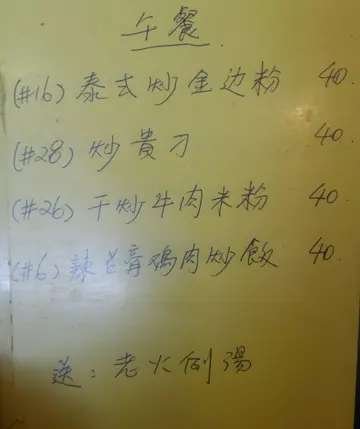 午餐
(#16) 泰式炒金边粉 40.
(#28) 炒貴刁 40.
(#26) 干炒牛肉米粉 40.
(#6) 辣占膏鳮肉炒飯 40.
送：老火例湯